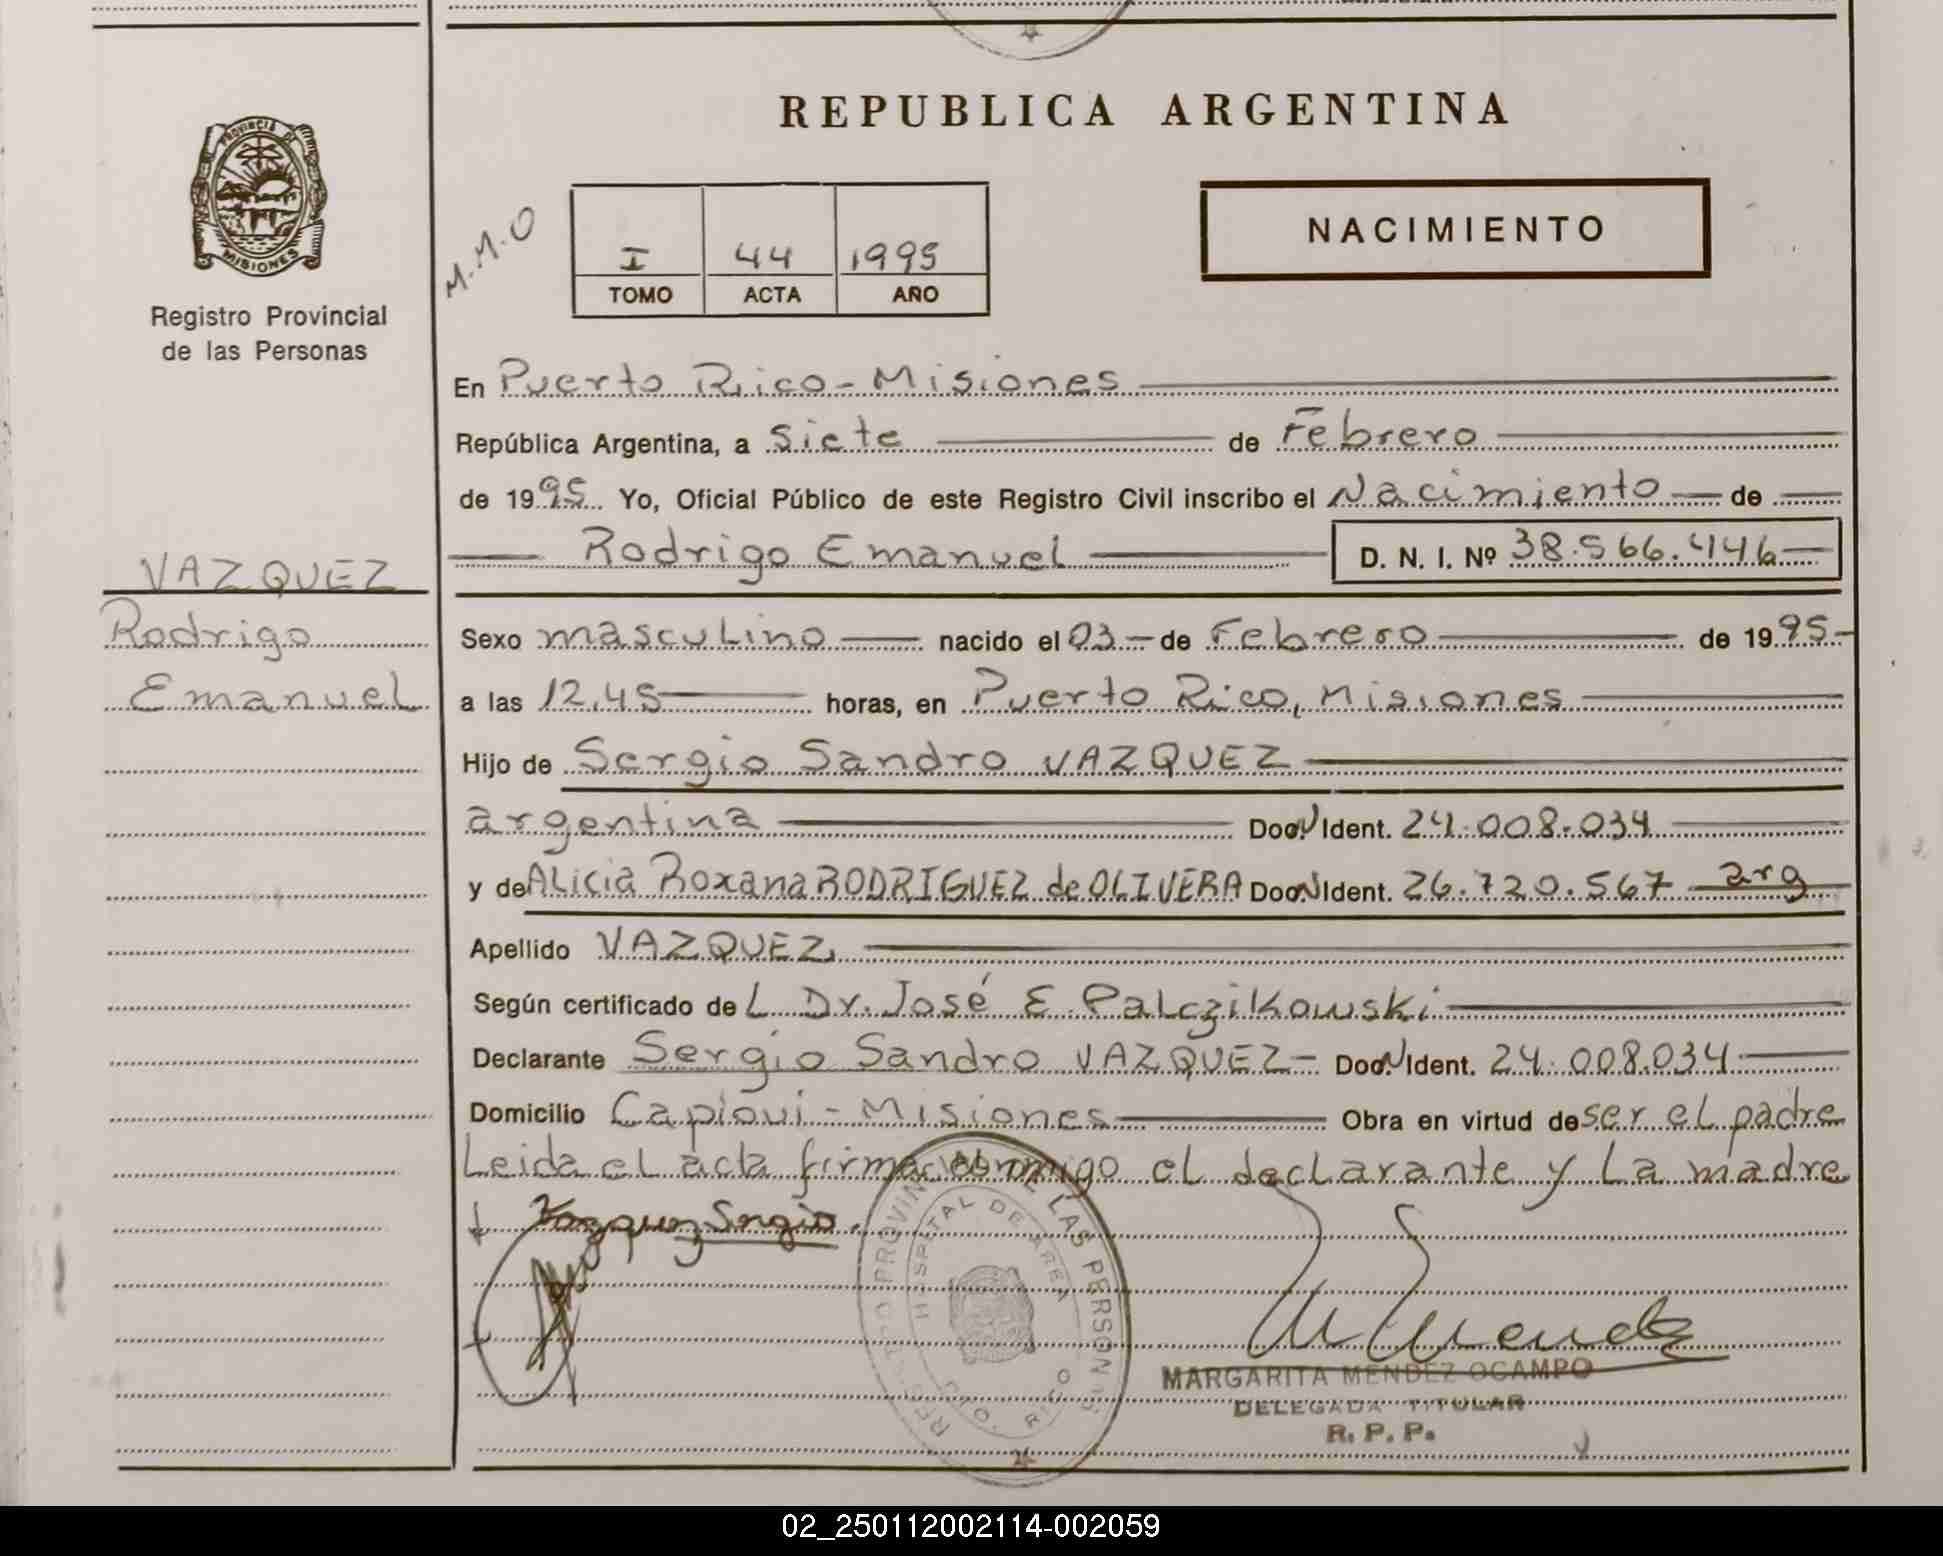 REPUBLICA ARGENTINA
PROVINCIA DE
MISIONES
Registro Provincial
de las Personas
M.M.O
I 44 1995
TOMO ACTA AÑO
NACIMIENTO
En Puerto Rico - Misiones
República Argentina, a siete de Febrero
de 1995 Yo, Oficial Público de este Registro Civil inscribo el Nacimiento de
Rodrigo Emanuel D. N. I. Nº 38.566.446
VAZQUEZ
Rodrigo
Emanuel
Sexo masculino nacido el 03 de Febrero de 1995
a las 12,45 horas, en Puerto Rico, Misiones
Hijo de Sergio Sandro VAZQUEZ
argentina Doc. N Ident. 24.008.034
y de Alicia Roxana RODRIGUEZ de OLIVERA Doc. N Ident. 26.720.567 arg
Apellido VAZQUEZ
Según certificado de L Dr. José E Palczikowski
Declarante Sergio Sandro VAZQUEZ Doc. N Ident. 24.008.034
Domicilio Capiovi - Misiones Obra en virtud de ser el padre
Leida el acta firma conmigo el declarante y la madre
Vazquez Sergio
REGISTRO PROVINCIAL DE LAS PERSONAS
HOSPITAL DE AREA
PTO. RICO
MARGARITA MENDEZ OCAMPO
DELEGADA TITULAR
R. P. P.
02_250112002114-002059